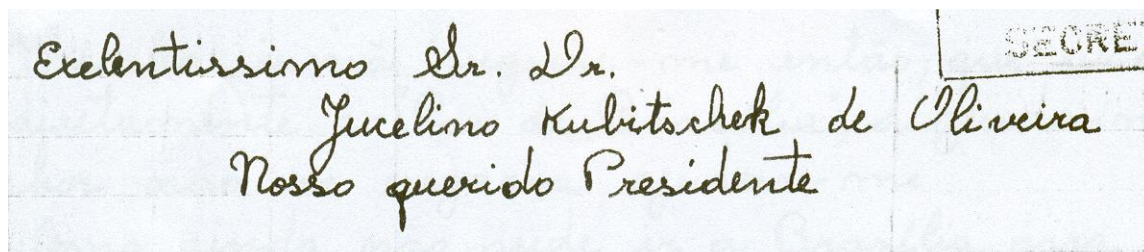 Exelentissimo Sr. Dr.
SECRE
Jucelino Kubitschek de Oliveira
Nosso querido Presidente